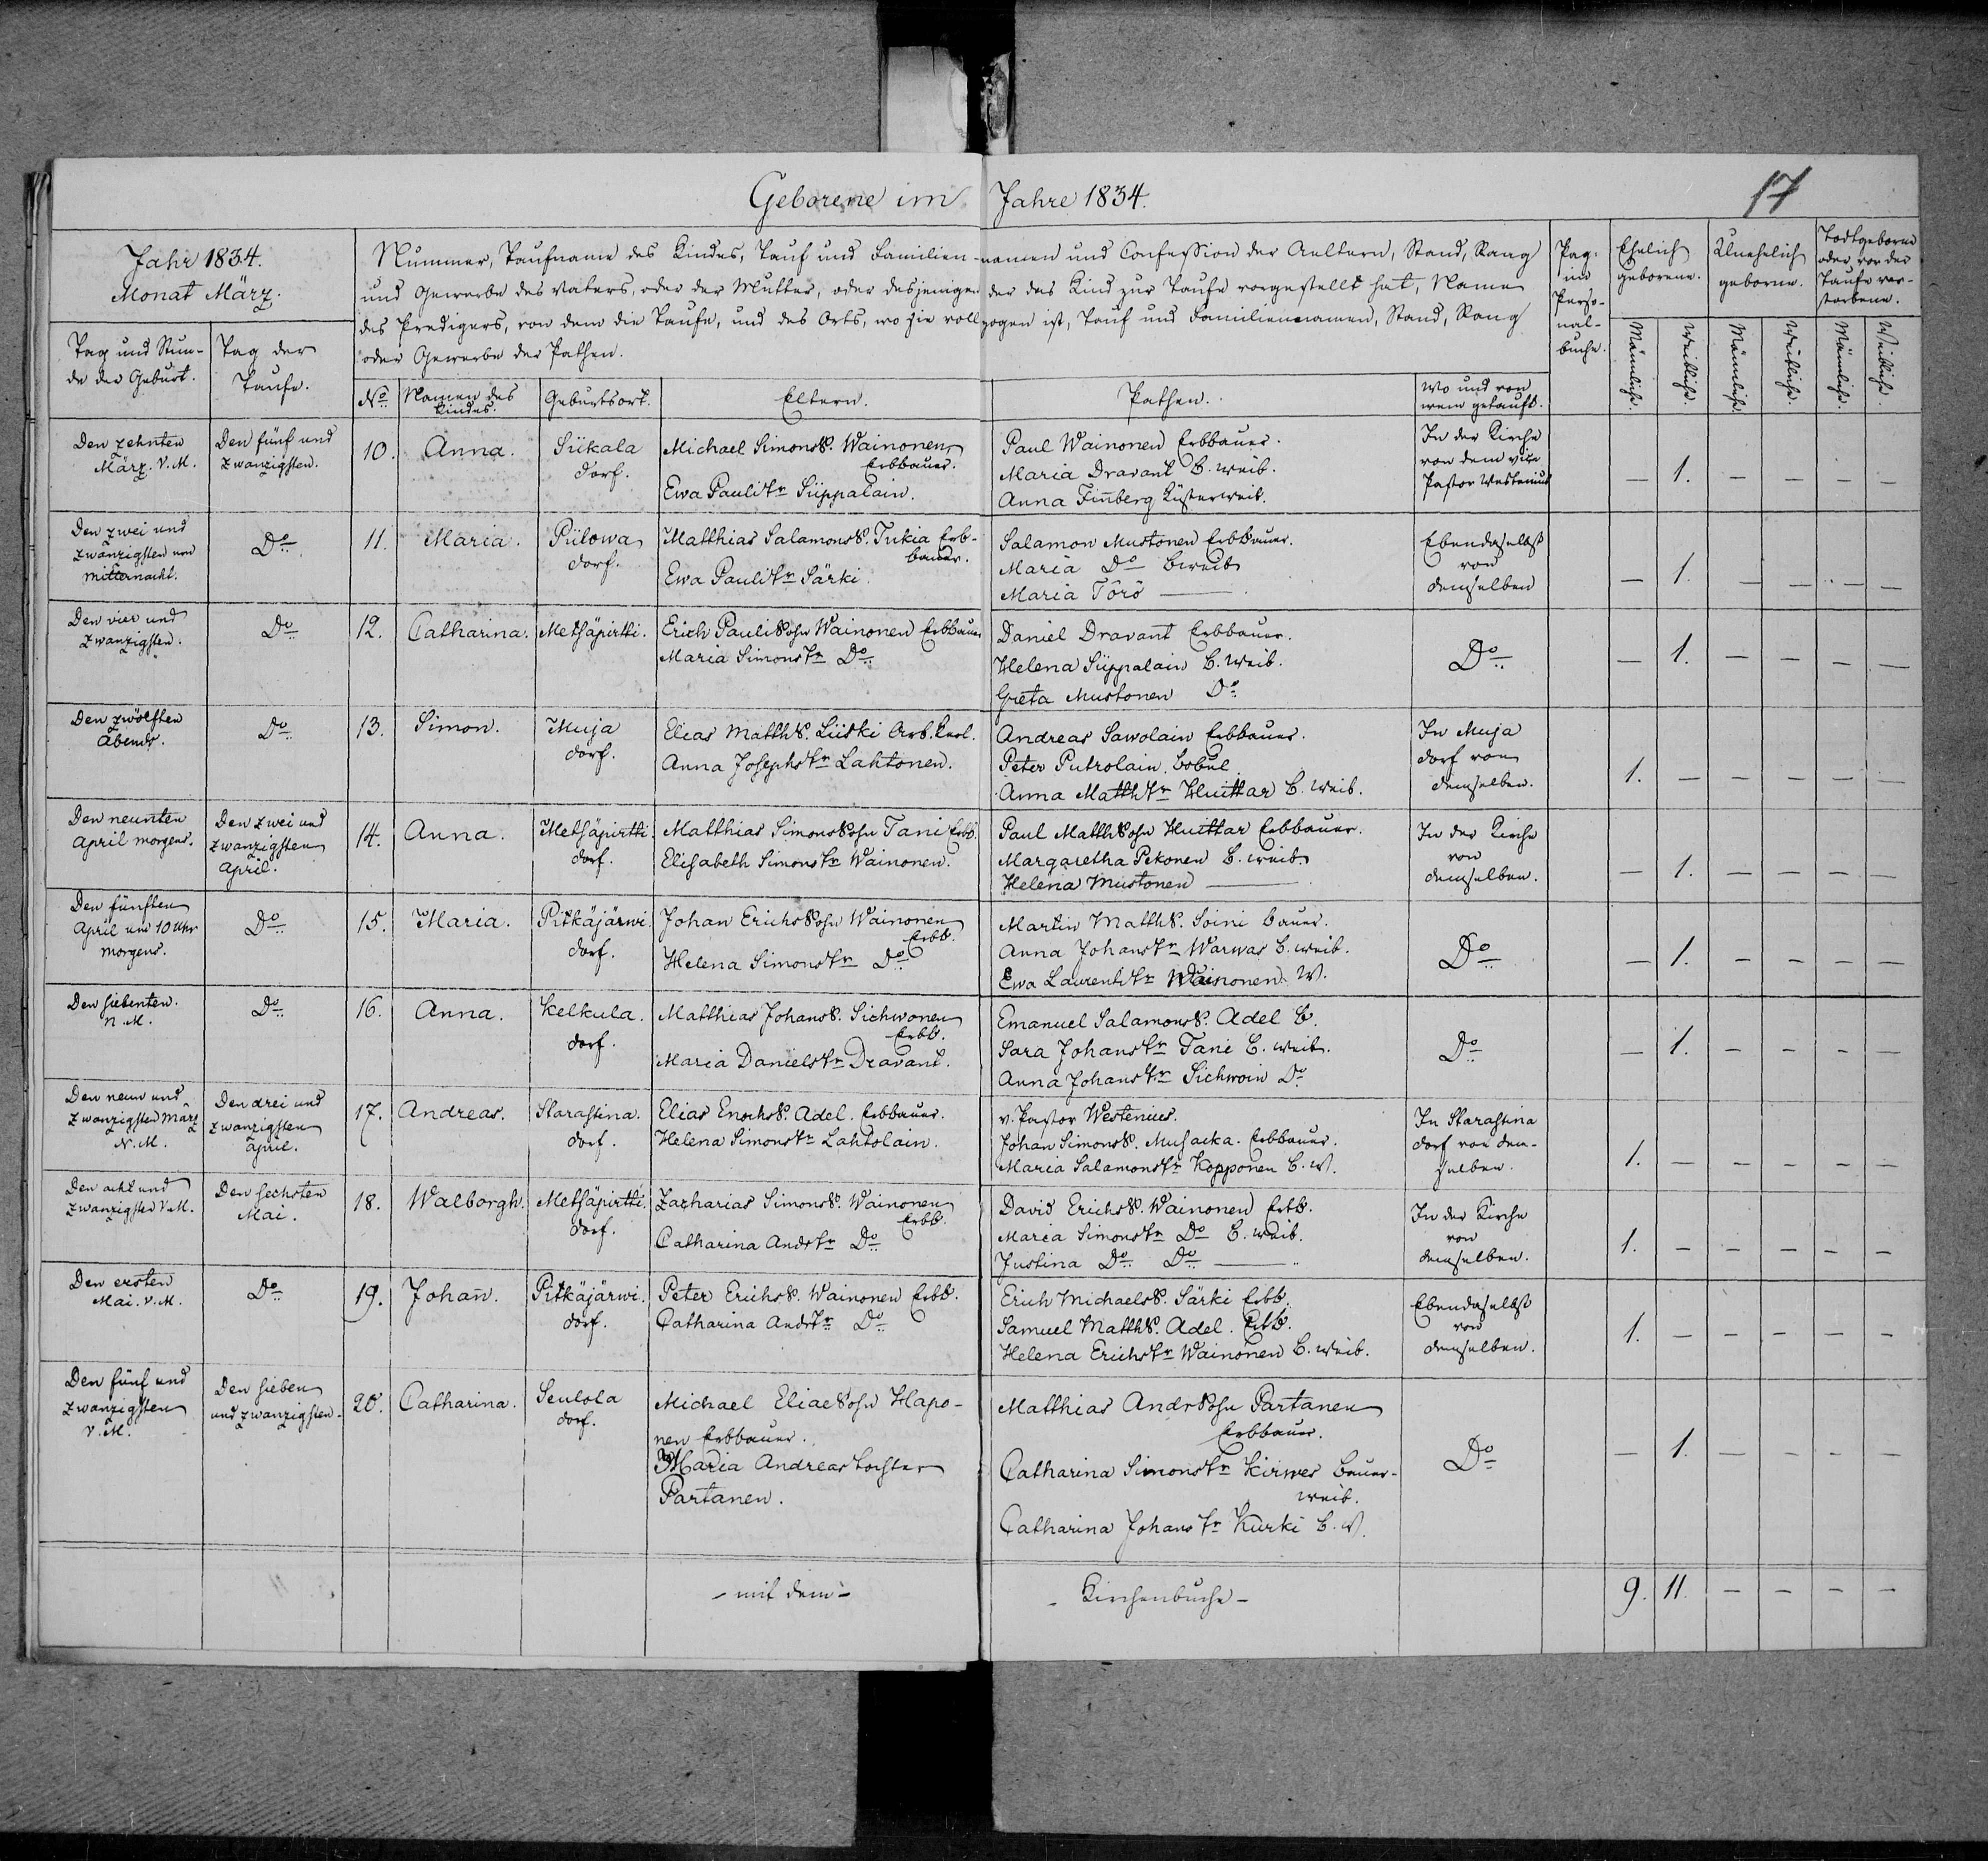 Geborene im Jahre 1834.
17
Jahr 1834.
Monat März.
Tag und Stun-
de der Geburt.
Tag der
Taufe.
Nummer, Taufname des Kindes, Tauf und Familien-namen und Confession der Aeltern, Stand, Rang
und Gewerbe des Vaters, oder der Mutter, oder desjenigen der das Kind zur Taufe vorgestellt hat, Name
des Predigers, von dem die Taufe, und des Orts, wo sie vollzogen ist, Tauf und Familiennamen, Stand, Rang
oder Gewerbe der Pathen.
No
Namen des
Kindes.
Geburtsort.
Eltern.
Pathen.
Wo und von
wem getauft.
Pag.
im
Perso-
nal-
buche.
Ehelich
geborene.
Unehelich
geborne.
Todtgeborne
oder vor der
Taufe ver-
storbene.
Männliche.
Weibliche.
Männliche.
Weibliche.
Männliche.
Weibliche.
Den zehnten
März. V.M.
Den fünf und
zwanzigsten.
10.
Anna.
Siikala
dorf.
Michael Simons S. Wainonen
Erbbauer.
Ewa Pauli Tr Siippalain.
Paul Wainonen Erbbauer.
Maria Dravant B. weib.
Anna Finnberg Küsterweib.
In der Kirche
von dem vice
Pastor Westenius
— 1. — — — —
Den zwei und
zwanzigsten von
mitternacht.
Do
11.
Maria.
Piilowa
dorf.
Matthias Salamons S. Tukia Erb-
bauer.
Ewa Pauli Tr Särki.
Salamon Mustonen Erbbauer.
Maria Do B weib
Maria Törö —
Ebendaselbst
von
demselben
— 1. — — — —
Den vier und
zwanzigsten.
Do
12.
Catharina.
Metsäpirtti.
Erich Pauli Sohn Wainonen Erbbauer
Maria Simons Tr Do
Daniel Dravant Erbbauer.
Helena Siippalain B. Weib.
Greta Mustonen Do
Do
— 1. — — — —
Den zwölften
Abends.
Do
13.
Simon.
Muja
dorf.
Elias Matth S. Liiski Arb. Kerl.
Anna Josephs Tr Lahtonen.
Andreas Sawolain Erbbauer.
Peter Putrolain. Bobul
Anna Matth Tr Huittar B. weib.
In Muja
dorf von
demselben.
1. — — — — —
Den neunten
April morgens.
Den zwei und
zwanzigsten
April.
14.
Anna.
Metsäpirtti.
dorf.
Matthias Simons Sohn Tani Erbb.
Elisabeth Simons Tr Wainonen.
Paul Matth Sohn Huittar Erbbauer.
Margaretha Pekonen B. weib.
Helena Mustonen —
In der Kirche
von
demselben.
— 1. — — — —
Den fünften
April um 10 Uhr
morgens.
Do
15.
Maria.
Pitkäjärwi
dorf.
Johan Erichs Sohn Wainonen
Erbb.
Helena Simons Tr Do
Martin Matth S. Soini Bauer.
Anna Johans Tr Warwas B. weib.
Ewa Laurenti Tr Wainonen W.
Do
— 1. — — — —
Den siebenten.
N.M.
Do
16.
Anna.
Kelkula.
dorf.
Matthias Johans S. Sichwonen
Erbb.
Maria Daniels Tr Dravant.
Emanuel Salamons S. Adel B.
Sara Johans Tr Tani B. weib.
Anna Johans Tr Sichwoin Do
Do
— 1. — — — —
Den neun und
zwanzigsten März
N.M.
Den drei und
zwanzigsten
April.
17.
Andreas.
Starastina.
dorf.
Elias Enochs S. Adel. Erbbauer.
Helena Simons Tr Lahtolain.
v. Pastor Westenius.
Johan Simons S. Musacka. Erbbauer.
Maria Salamons Tr Kopponen B. W.
In Starastina
dorf von dem-
selben.
1. — — — — —
Den acht und
zwanzigsten V.M.
Den sechsten
Mai.
18.
Walborgh.
Metsäpirtti.
dorf.
Zacharias Simons S. Wainonen
Erbb.
Catharina Ands Tr Do
David Erichs S. Wainonen Erbb.
Maria Simons Tr Do B. weib.
Justina Do Do —
In der Kirche
von
demselben.
1. — — — — —
Den ersten
Mai. V.M.
Do
19.
Johan̄.
Pitkäjärwi.
dorf.
Peter Erichs S. Wainonen Erbb.
Catharina Ands Tr Do
Erich Michaels S. Särki Erbb.
Samuel Matth S. Adel. Erbb.
Helena Erichs Tr Wainonen B. weib.
Ebendaselbst
von
demselben.
1. — — — — —
Den fünf und
zwanzigsten
V.M.
Den sieben
und zwanzigsten.
20.
Catharina.
Seulola
dorf.
Michael Eliae Sohn Hapo-
nen Erbbauer.
Maria Andreas tochter
Partanen.
Matthias Andr Sohn Partanen
Erbbauer.
Catharina Simons Tr Kirwes Bauer-
weib.
Catharina Johans Tr Kurki B. W.
Do
— 1. — — — —
- mit dem -
- Kirchenbuche -
9. 11. — — — —